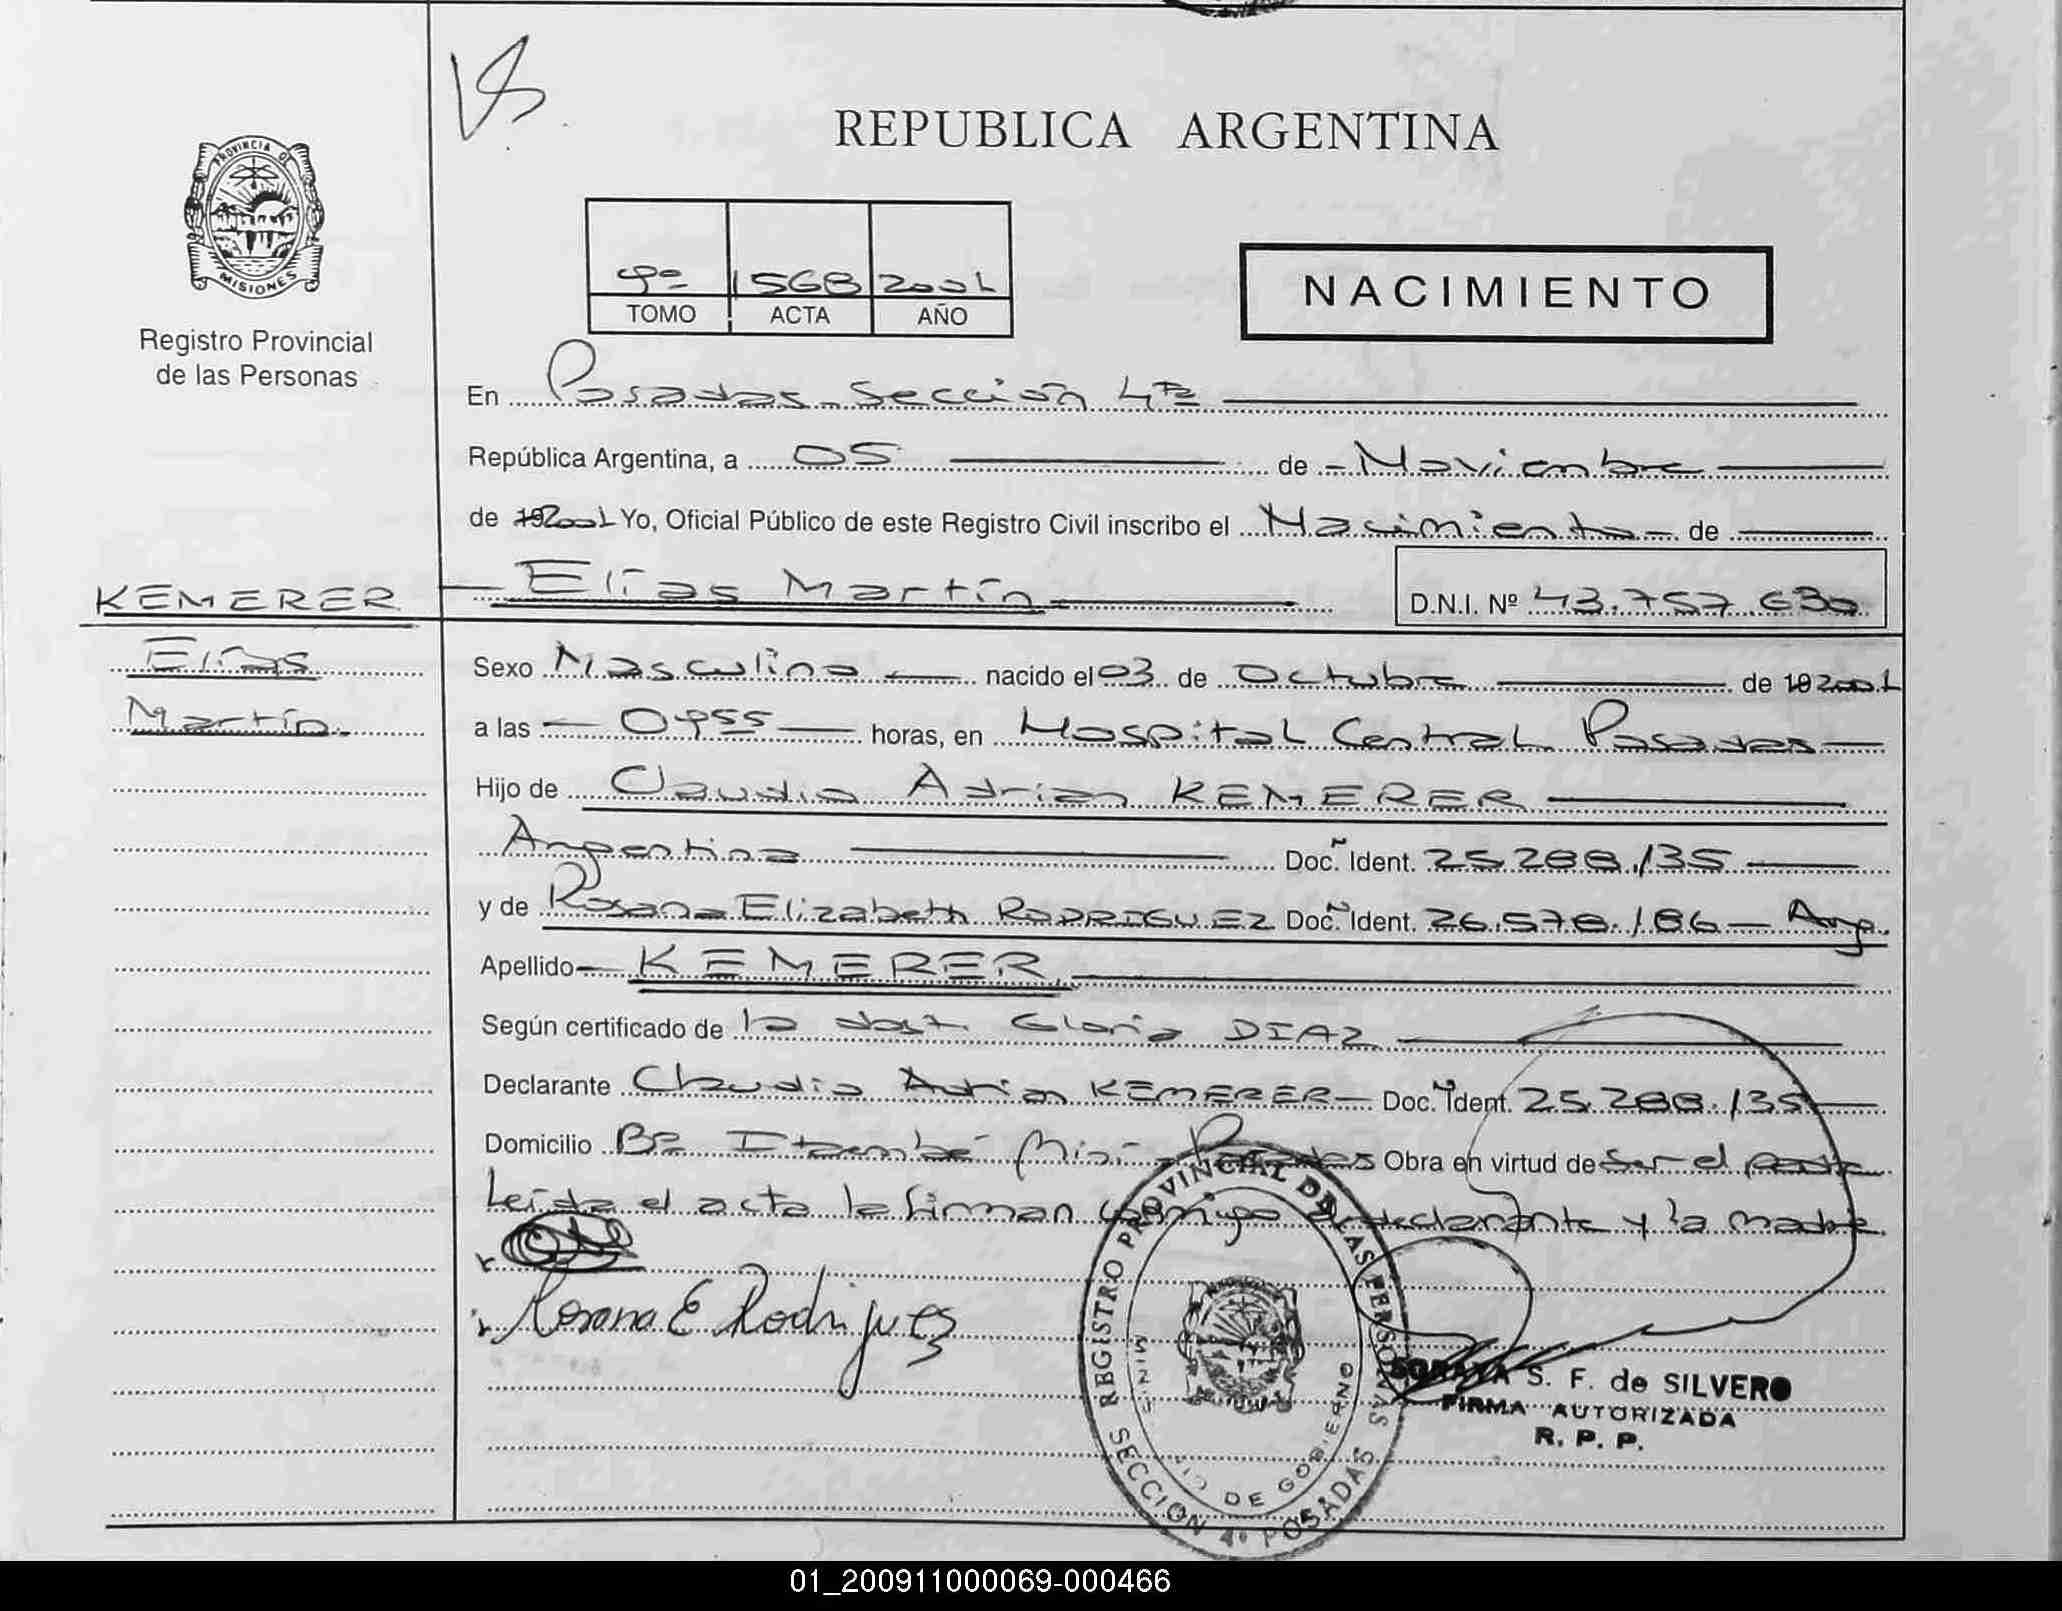 REPUBLICA ARGENTINA
PROVINCIA DE
MISIONES
Registro Provincial
de las Personas
9º 1568 2001
TOMO ACTA AÑO
NACIMIENTO
En Posadas-Sección 4ta
República Argentina, a 05 de Noviembre
de 19 2001 Yo, Oficial Público de este Registro Civil inscribo el Nacimiento de
KEMERER Elías Martín D.N.I. Nº 43.757.630
Elías
Martín.
Sexo Masculino nacido el 03 de Octubre de 19 2001
a las 0955 horas, en Hospital Central Posadas
Hijo de Claudio Adrian KEMERER
Argentina Doc. Ident. 25.288.135
y de Rosana Elizabeth RODRIGUEZ Doc. Ident. 26.578.186 Arg.
Apellido KEMERER
Según certificado de la obst. Gloria DIAZ
Declarante Claudio Adrian KEMERER Doc. Ident. 25.288.135
Domicilio Bº Itaembé Miní-Posadas Obra en virtud de ser el padre
Leída el acta la firman conmigo el declarante y la madre.
Rosana E Rodriguez
REGISTRO PROVINCIAL DE LAS PERSONAS
MINISTERIO DE GOBIERNO
SECCION 4º POSADAS
SORAYA S. F. de SILVERO
FIRMA AUTORIZADA
R. P. P.
01_200911000069-000466